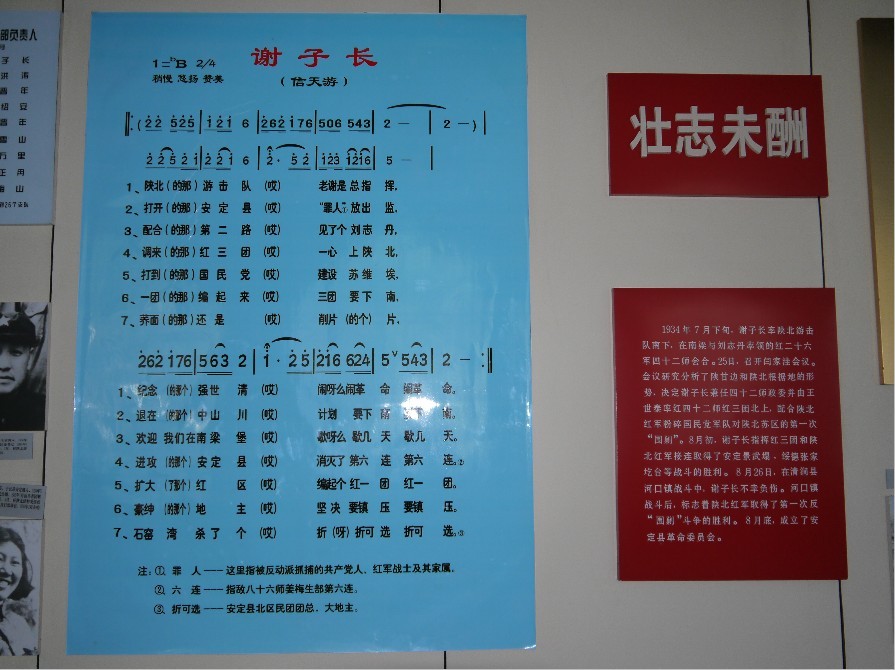 部负责人
子 长
洪 涛
青 年
绍 安
青 年
雪 山
万 里
正 丹
谢子长
（信天游）
1=♭B 2/4
稍慢 悠扬 赞美
‖:（22 525|121 6|262 176|506 543|2 －|2 －）|
22 52 1|221 6|2· 52|123 1216|5 －|
1、陕北（的那）游击队（哎） 老谢是总指挥，
2、打开（的那）安定县（哎） “罪人”①放出监，
3、配合（的那）第二路（哎） 见了个刘志丹，
4、调来（的那）红三团（哎） 一心上陕北，
5、打到（的那）国民党（哎） 建设苏维埃，
6、一团（的那）编起来（哎） 三团要下南，
7、荞面（的那）还是（哎） 削片（的个）片，
262 176|563 2|1· 25|216 624|5ˇ543|2 －:‖
1、纪念（的那个）强世清（哎） 闹呀么闹革命 闹革命。
2、退在（的那个）中山川（哎） 计划要下南 要下南。
3、欢迎我们在南梁堡（哎） 歇呀么歇几天 歇几天。
4、进攻（的那个）安定县（哎） 消灭了第六连 第六连。②
5、扩大（了那个）红区（哎） 编起个红一团 红一团。
6、豪绅（的那个）地主（哎） 坚决要镇压 要镇压。
7、石窑湾杀了个（哎） 折（呀）折可选 折可选。③
注：① 罪人——这里指被反动派抓捕的共产党人、红军战士及其家属。
② 六连——指敌八十六师姜梅生部第六连。
③ 折可选——安定县北区民团团总，大地主。
壮志未酬
1934年7月下旬，谢子长率陕北游击
队南下，在南梁与刘志丹率领的红二十六
军四十二师会合。25日，召开阎家洼会议。
会议研究分析了陕甘边和陕北根据地的形
势，决定谢子长兼任四十二师政委并由王
世泰率红四十二师红三团北上，配合陕北
红军粉碎国民党军队对陕北苏区的第一次
“围剿”。8月初，谢子长指挥红三团和陕
北红军接连取得了安定景武塌、绥德张家
圪台等战斗的胜利。8月26日，在清涧县
河口镇战斗中，谢子长不幸负伤。河口镇
战斗后，标志着陕北红军取得了第一次反
“围剿”斗争的胜利。8月底，成立了安
定县革命委员会。